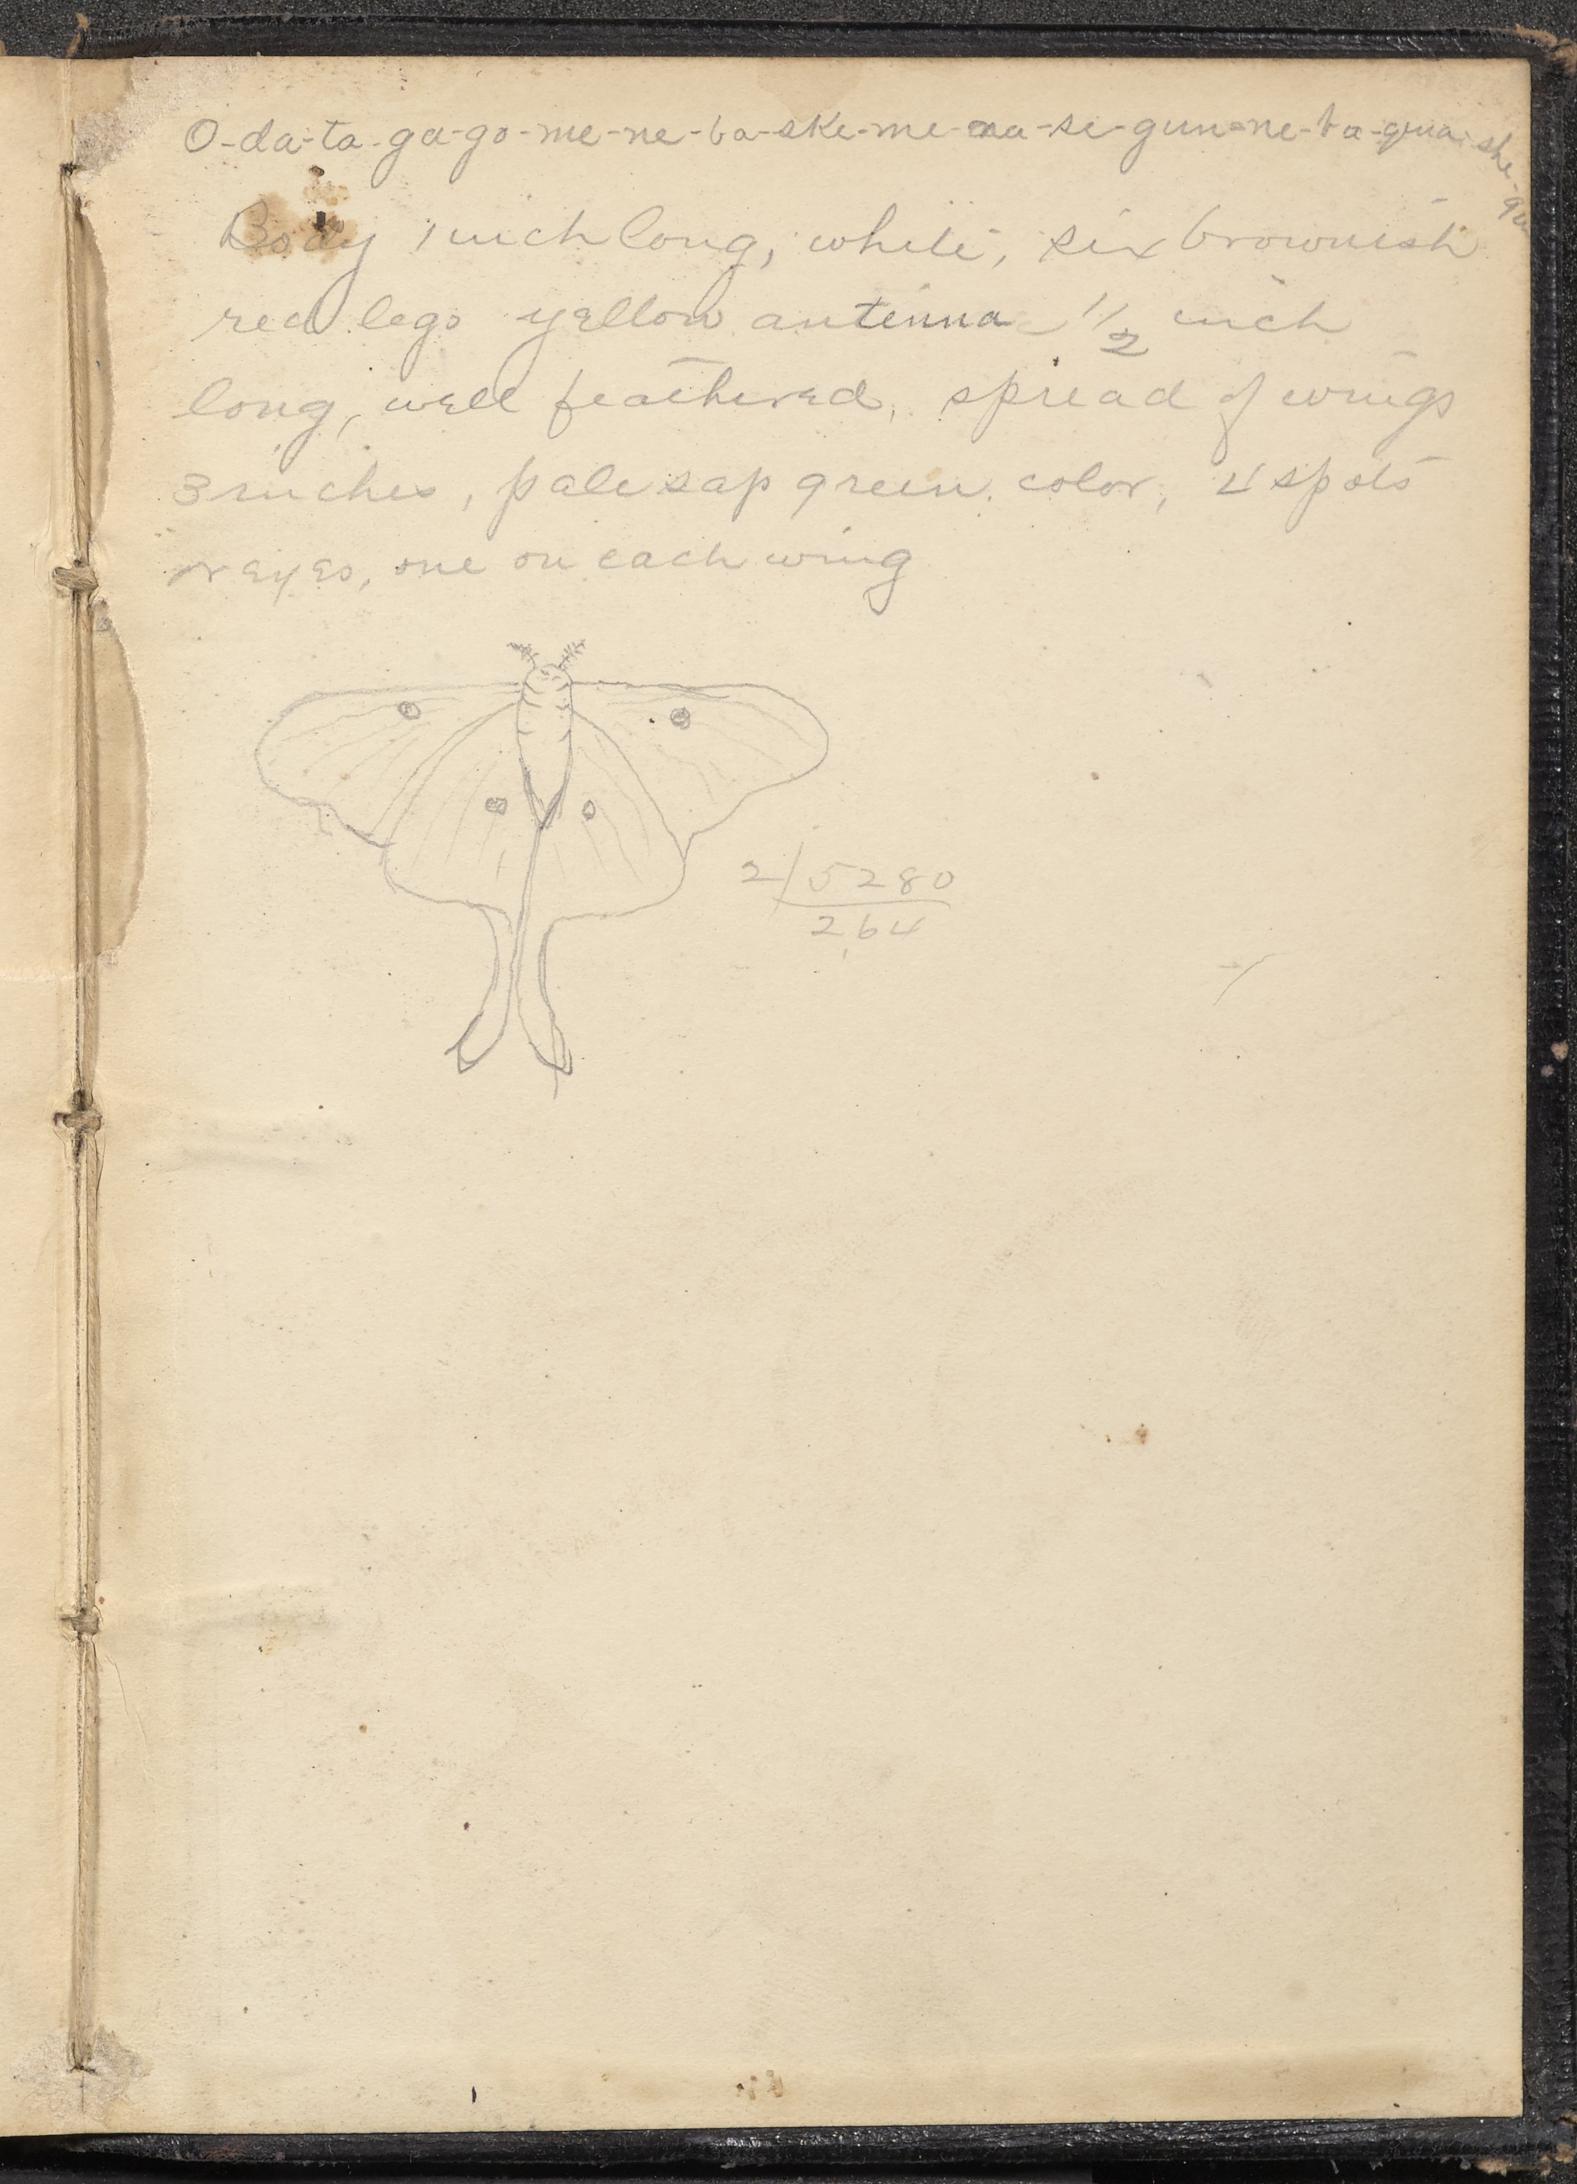 O-da-ta-ga-go-me-ne-ba-ske-me-na-se-gun-ne-ba-gwa-she-gu
Body 1 inch long, white, six brownish
red legs yellow antenna 1/2 inch
long, well feathered, spread of wings
3 inches, pale sap green color, 4 spots
or eyes, one on each wing
2/5280
264